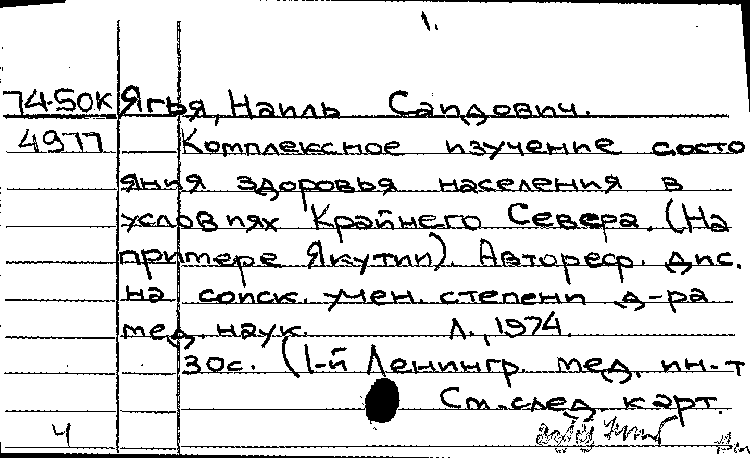 1.
74-50К Ягья, Наиль Саидович.
4977 Комплексное изучение состо
яния здоровья населения в
условиях Крайнего Севера. (На
примере Якутии). Автореф. дис.
на соиск. учен. степени д-ра
мед. наук. Л., 1974.
30с. (1-й Ленингр. мед. ин-т
См. след. карт.
4